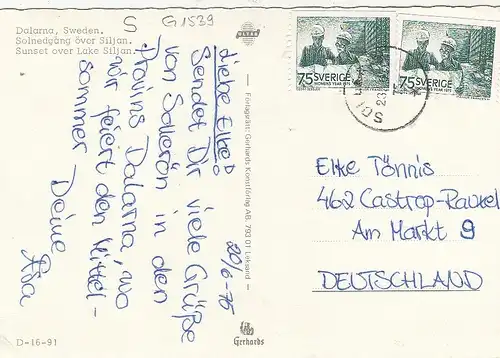 S G 1539
Dalarna, Sweden.
Solnedgång över Siljan.
Sunset over Lake Siljan.
ULTRA
20/6-76
Liebe Elke!
Sendet Dir viele Grüße
von Sollerön in den
Provins Dalarna, wo
wir feiert den Mittel-
sommer
Deine
Åsa
D-16-91
— Förlagsrätt: Gerhards Konstförlag AB, 793 01 Leksand —
Gerhards
75 SVERIGE
WOMENS YEAR 1975
75 SVERIGE
WOMENS YEAR 1975
Elke Tönnis
462 Castrop-Rauxel
Am Markt 9
DEUTSCHLAND